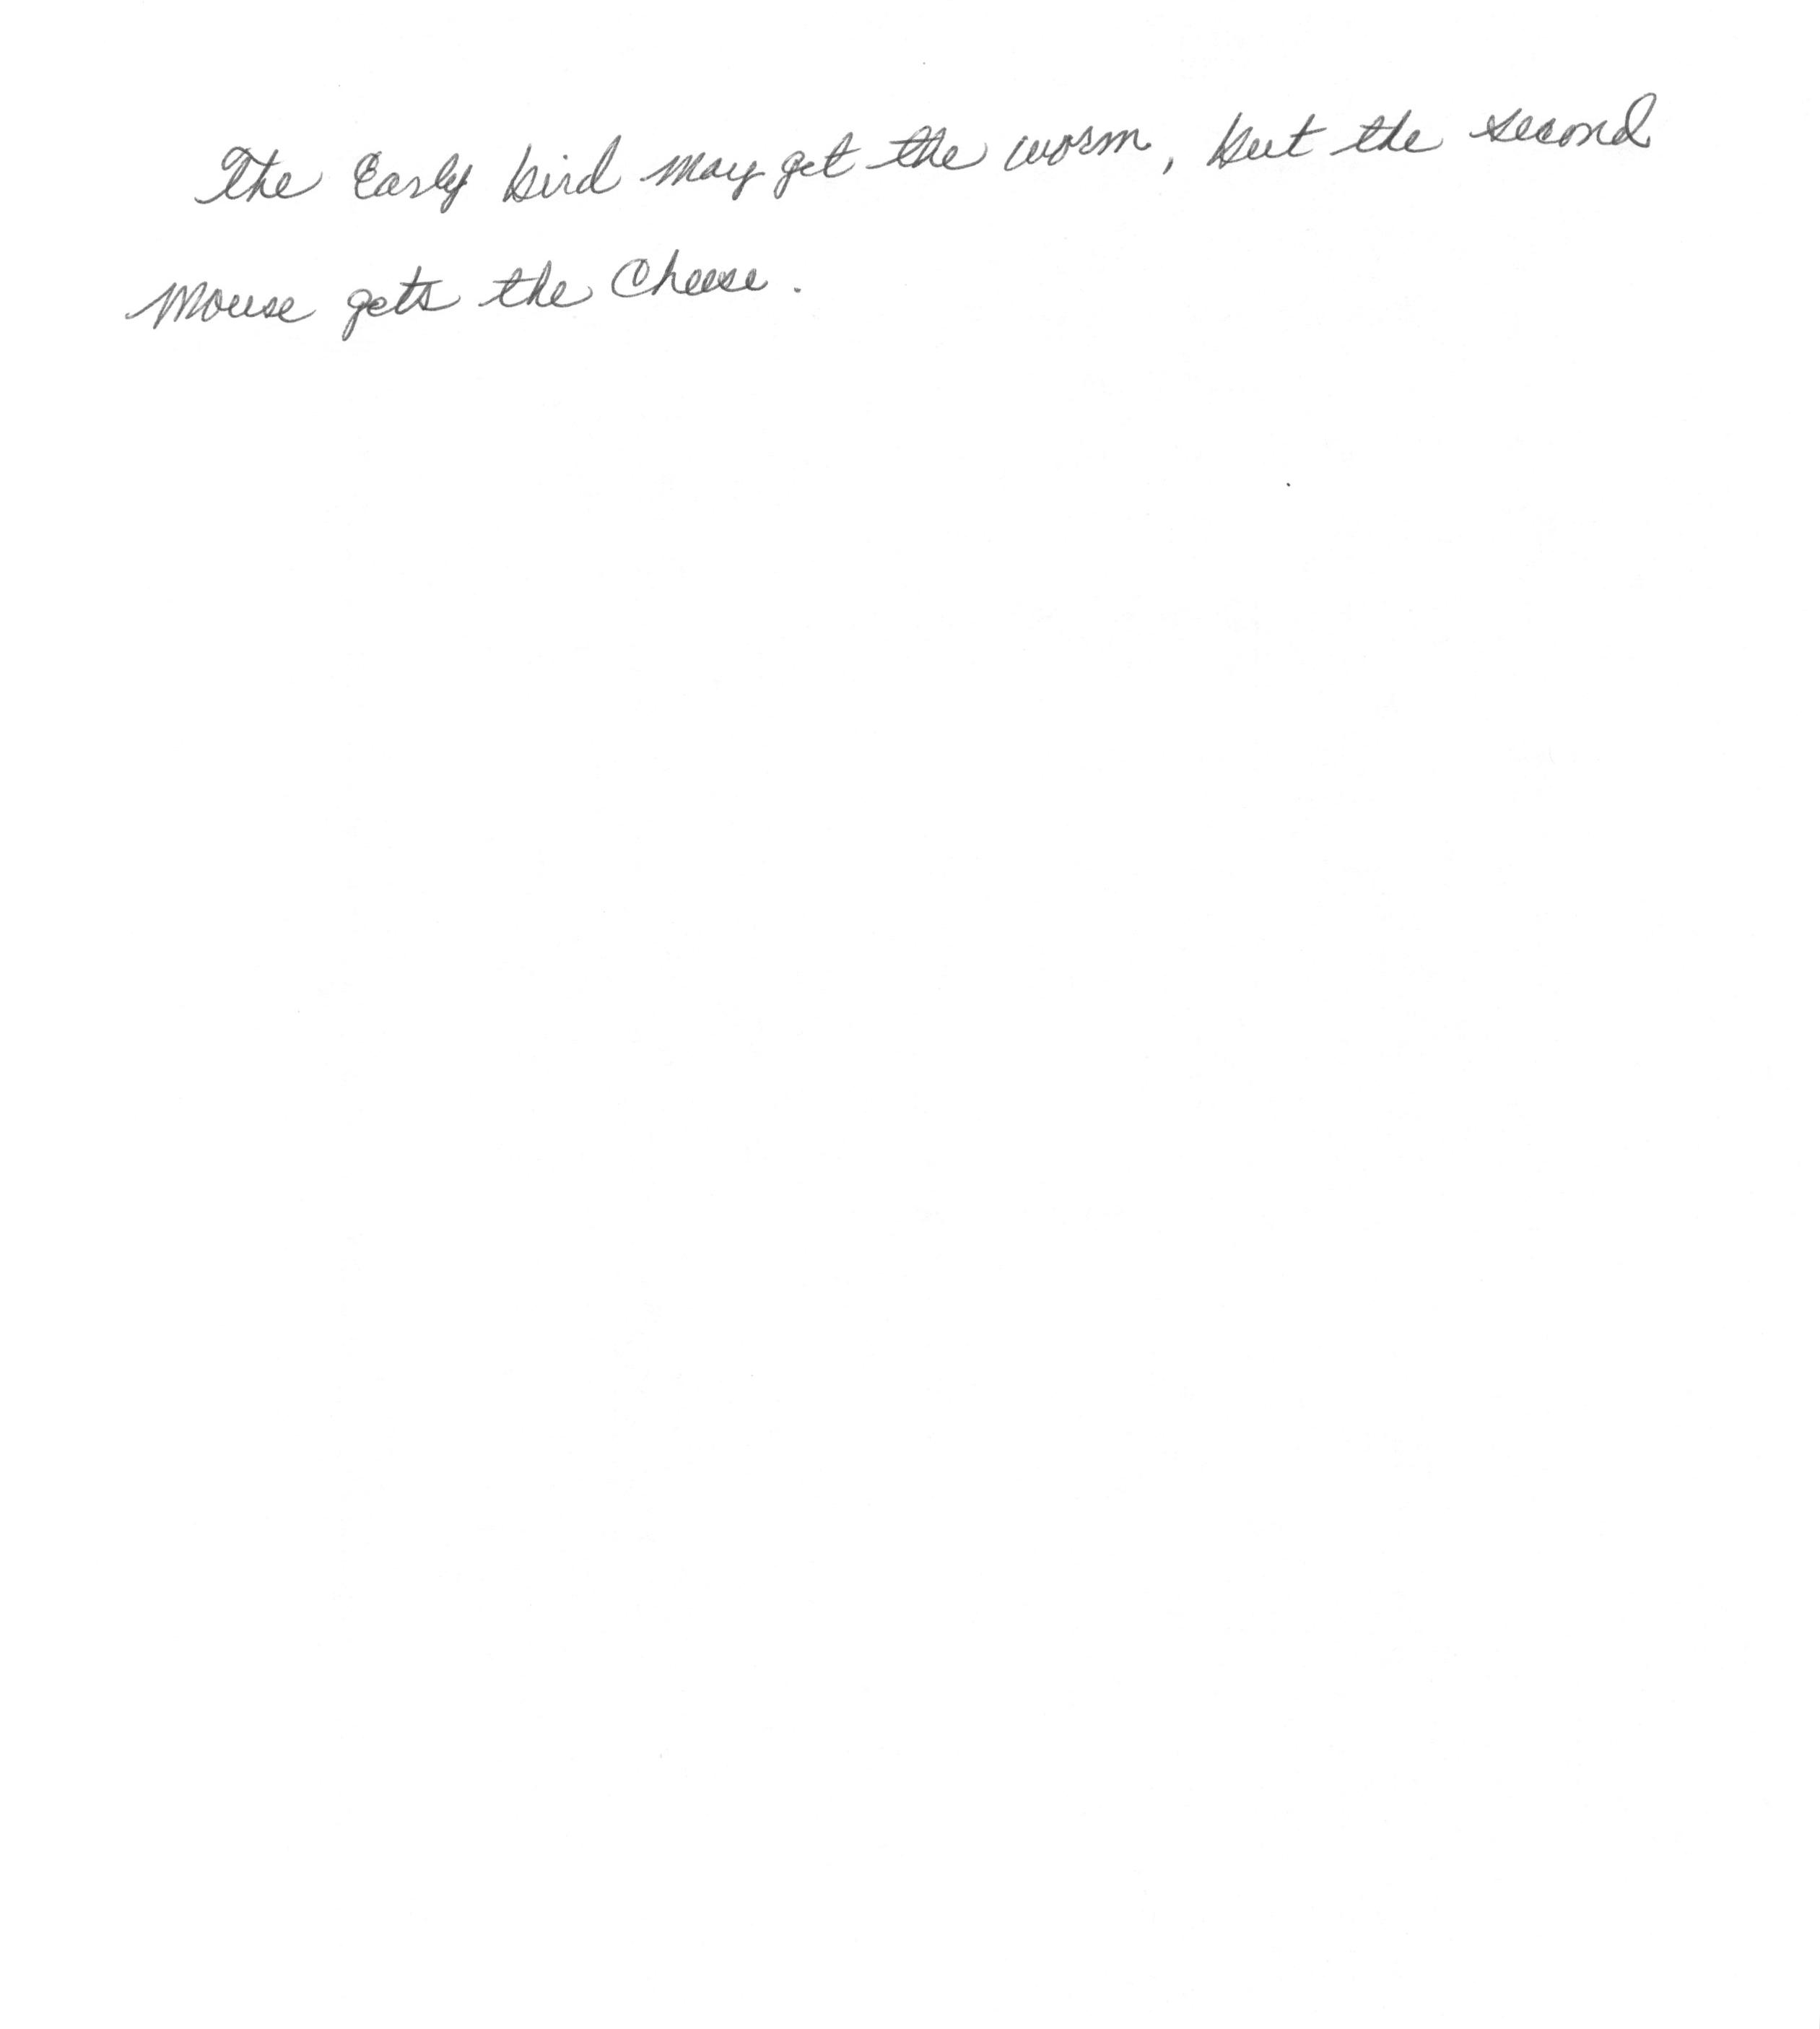 The Early bird may get the worm, but the second
Mouse gets the Cheese.